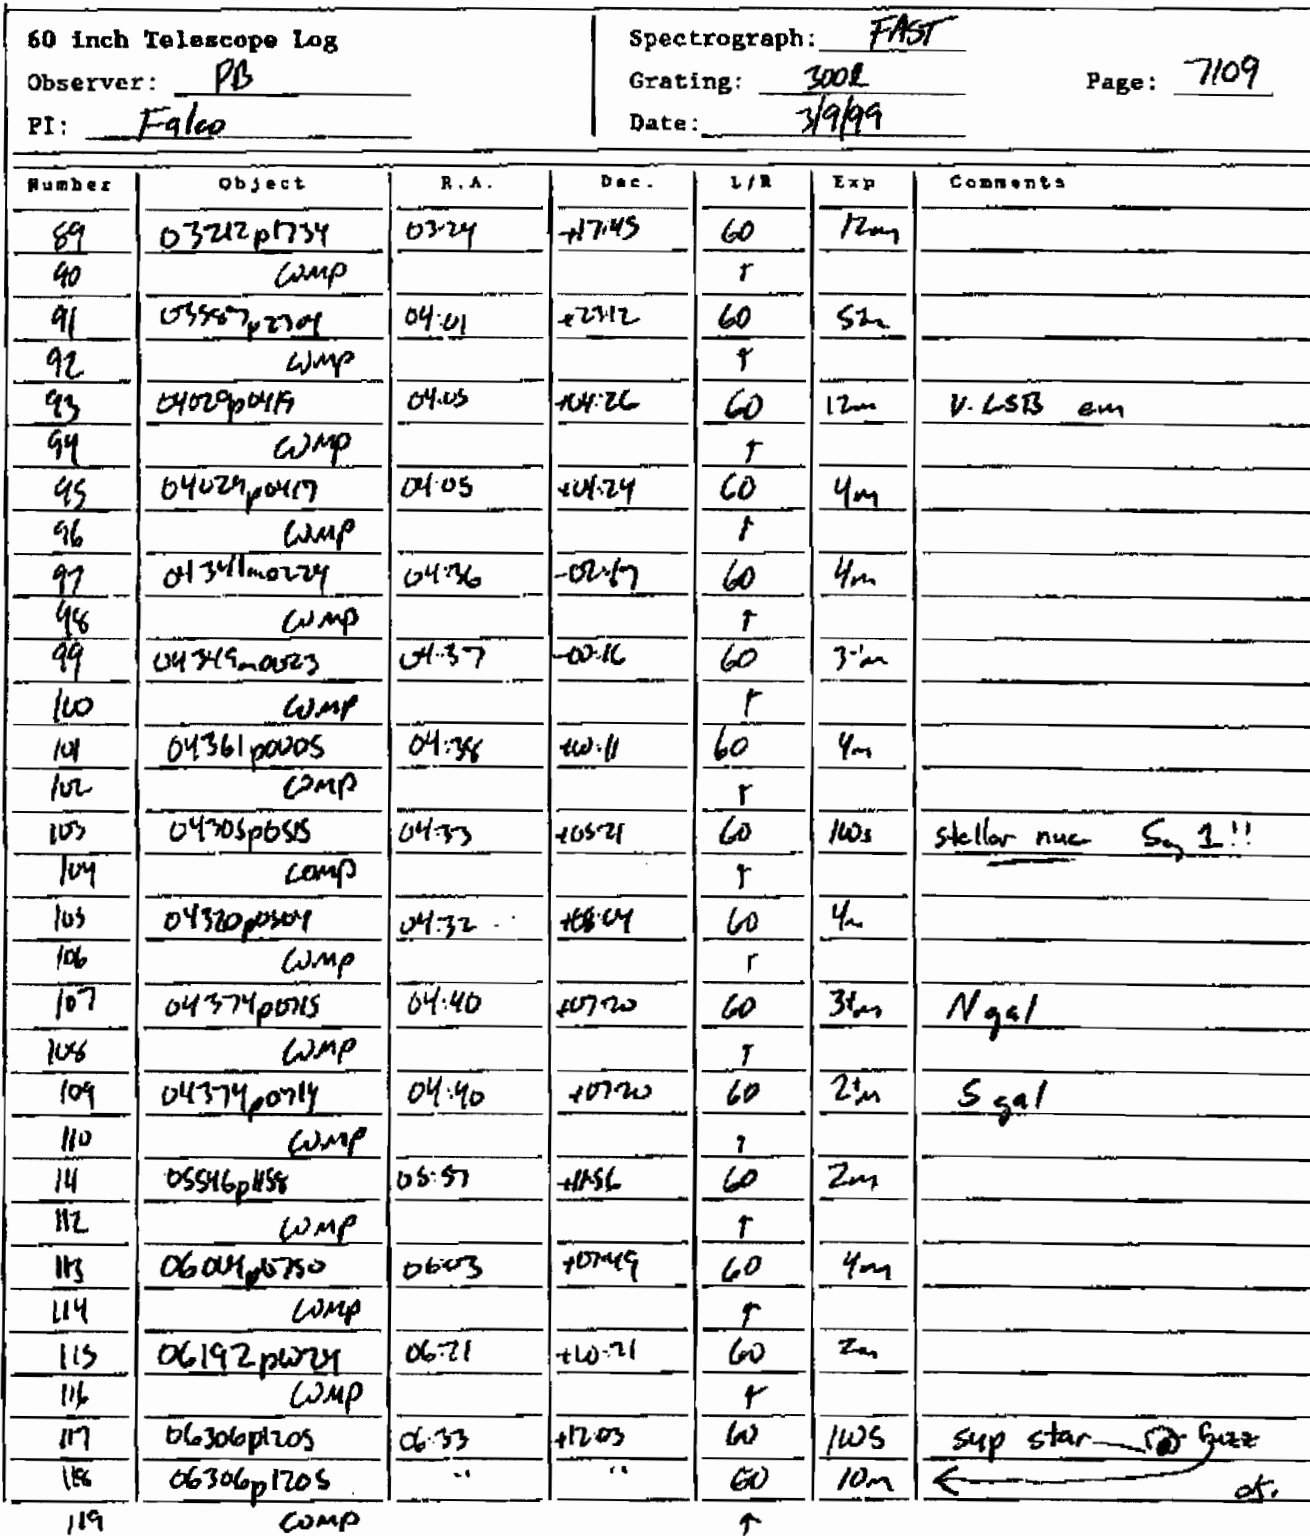 60 inch Telescope Log Spectrograph: FAST
Observer: PB Grating: 300l Page: 7109
PI: Falco Date: 3/9/99
Number Object R.A. Dec. L/R Exp Comments
89 03212p1734 03:24 +17:45 60 12m
90 COMP ↑
91 03587p2304 04:01 +23:12 60 5m
92 COMP ↑
93 04029p0419 04:05 +04:26 60 12m V. LSB em
94 COMP ↑
95 04029p0417 04:05 +04:24 60 4m
96 COMP ↑
97 04341m0224 04:36 60 4m
98 COMP ↑
99 04349m0023 04:37 -00:16 60 3+m
100 COMP ↑
101 04361p0005 04:38 +00:11 60 4m
102 COMP ↑
103 04305p0515 04:33 +05:21 60 100s stellar nuc Sy 1!!
104 COMP ↑
105 04:32 60 4m
106 COMP ↑
107 04374p0715 04:40 +07:20 60 3+m N gal
108 COMP ↑
109 04374p0714 04:40 +07:20 60 2+m S gal
110 COMP ↑
111 05546p1158 05:57 60 2m
112 COMP ↑
113 06004p0750 06:03 +07:49 60 4m
114 COMP ↑
115 06192p1024 06:21 +10:21 60 2m
116 COMP ↑
117 06306p1205 06:33 +12:03 60 100s sup star fuzz
118 06306p1205 " " 60 10m
119 COMP ↑